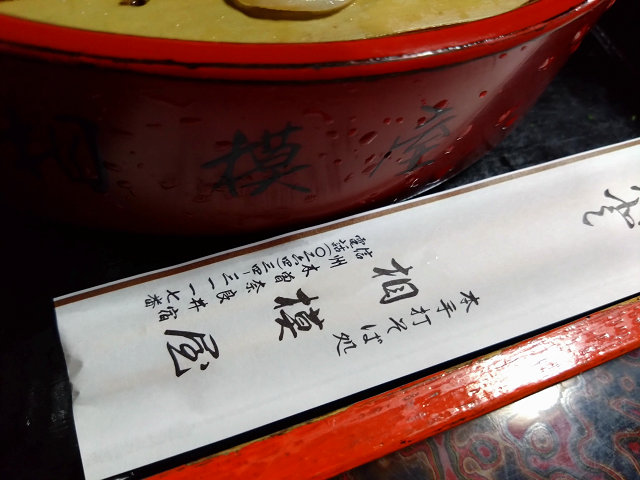 相模屋
本手打そば処
相模屋
信州木曽奈良井宿
電話(〇二六四)三四-三一一七番